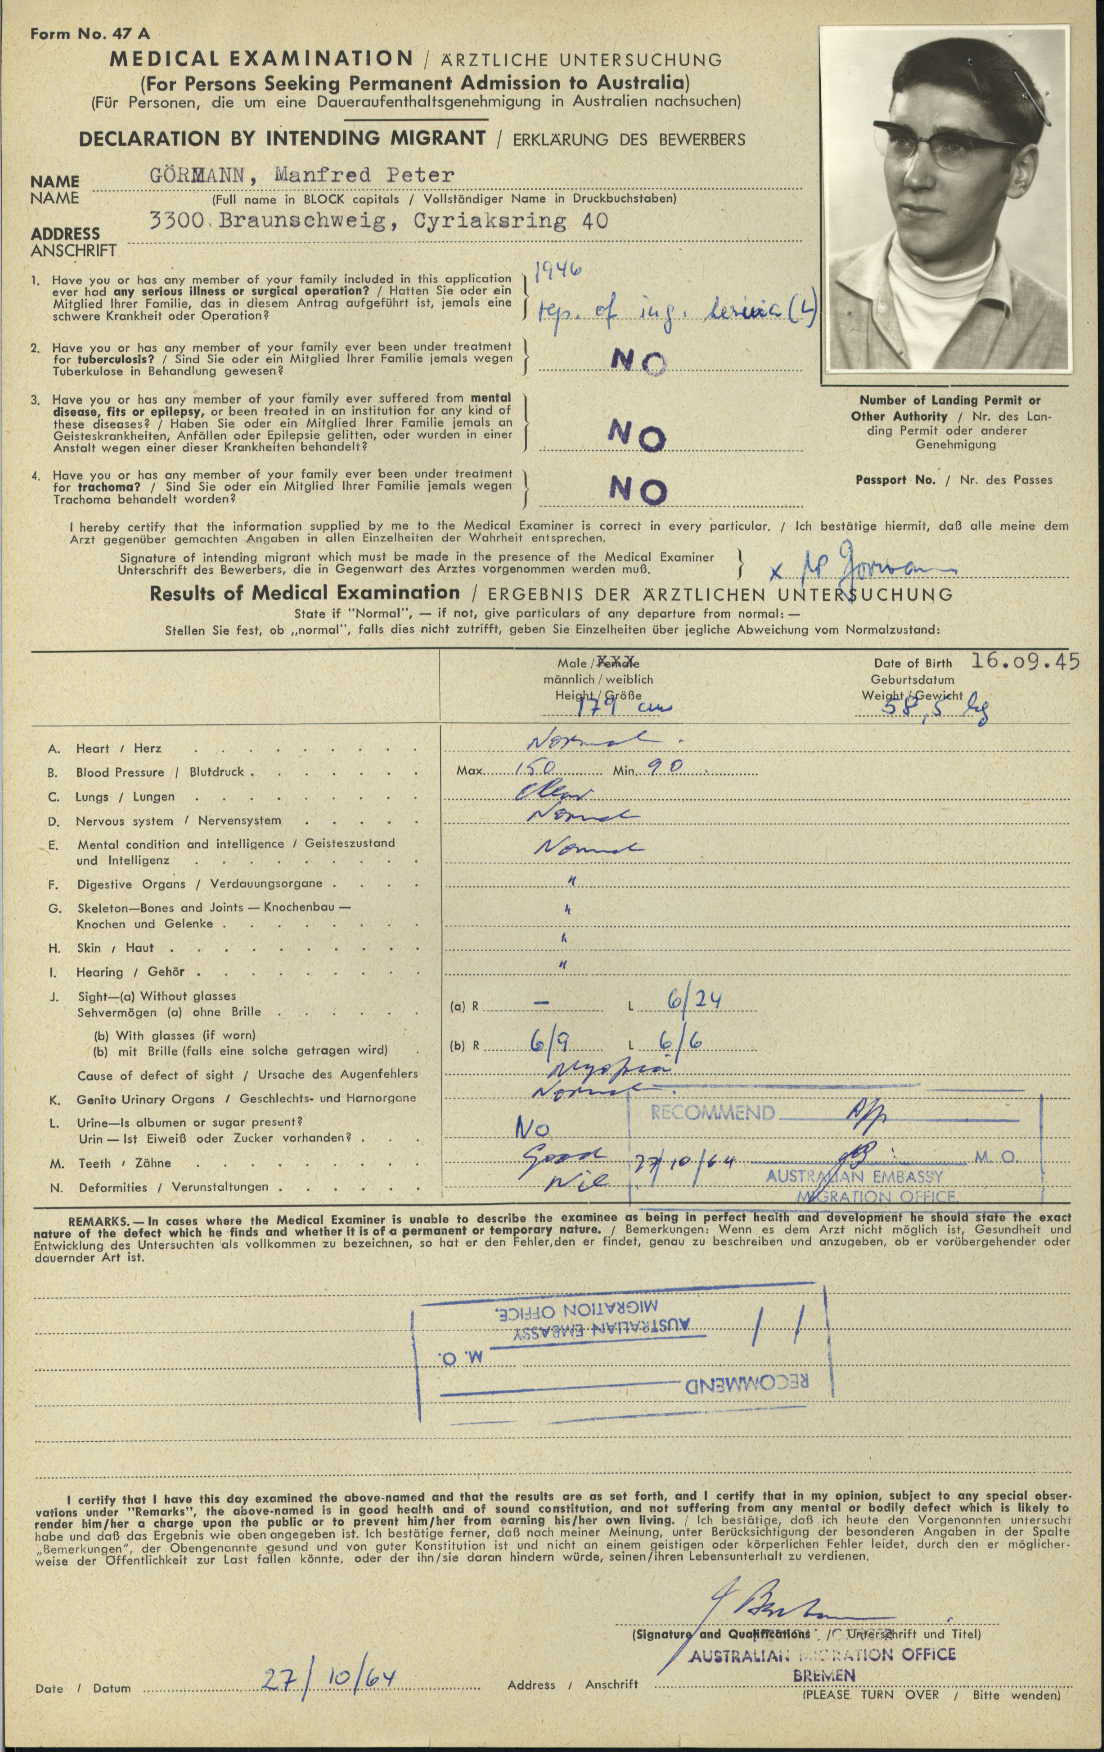 Form No. 47 A
MEDICAL EXAMINATION / ÄRZTLICHE UNTERSUCHUNG
(For Persons Seeking Permanent Admission to Australia)
(Für Personen, die um eine Daueraufenthaltsgenehmigung in Australien nachsuchen)
DECLARATION BY INTENDING MIGRANT / ERKLÄRUNG DES BEWERBERS
NAME GÖRMANN, Manfred Peter
NAME (Full name in BLOCK capitals / Vollständiger Name in Druckbuchstaben)
ADDRESS 3300 Braunschweig, Cyriaksring 40
ANSCHRIFT
1. Have you or has any member of your family included in this application
ever had any serious illness or surgical operation? / Hatten Sie oder ein
Mitglied Ihrer Familie, das in diesem Antrag aufgeführt ist, jemals eine
schwere Krankheit oder Operation?
1946
rep. of ing. hernia (L)
2. Have you or has any member of your family ever been under treatment
for tuberculosis? / Sind Sie oder ein Mitglied Ihrer Familie jemals wegen
Tuberkulose in Behandlung gewesen?
NO
3. Have you or has any member of your family ever suffered from mental
disease, fits or epilepsy, or been treated in an institution for any kind of
these diseases? / Haben Sie oder ein Mitglied Ihrer Familie jemals an
Geisteskrankheiten, Anfällen oder Epilepsie gelitten, oder wurden in einer
Anstalt wegen einer dieser Krankheiten behandelt?
NO
4. Have you or has any member of your family ever been under treatment
for trachoma? / Sind Sie oder ein Mitglied Ihrer Familie jemals wegen
Trachoma behandelt worden?
NO
Number of Landing Permit or
Other Authority / Nr. des Lan-
ding Permit oder anderer
Genehmigung
Passport No. / Nr. des Passes
I hereby certify that the information supplied by me to the Medical Examiner is correct in every particular. / Ich bestätige hiermit, daß alle meine dem
Arzt gegenüber gemachten Angaben in allen Einzelheiten der Wahrheit entsprechen.
Signature of intending migrant which must be made in the presence of the Medical Examiner
Unterschrift des Bewerbers, die in Gegenwart des Arztes vorgenommen werden muß.
x MP Görmann
Results of Medical Examination / ERGEBNIS DER ÄRZTLICHEN UNTERSUCHUNG
State if "Normal", — if not, give particulars of any departure from normal: —
Stellen Sie fest, ob „normal", falls dies nicht zutrifft, geben Sie Einzelheiten über jegliche Abweichung vom Normalzustand:
Male / Female xxx
männlich / weiblich
Height / Größe
179 cm
Date of Birth 16.09.45
Geburtsdatum
Weight / Gewicht
58,5 kg
A. Heart / Herz Normal.
B. Blood Pressure / Blutdruck Max. 150 Min. 90
C. Lungs / Lungen Clear
D. Nervous system / Nervensystem Normal
E. Mental condition and intelligence / Geisteszustand
und Intelligenz Normal
F. Digestive Organs / Verdauungsorgane "
G. Skeleton—Bones and Joints — Knochenbau —
Knochen und Gelenke "
H. Skin / Haut "
I. Hearing / Gehör "
J. Sight—(a) Without glasses
Sehvermögen (a) ohne Brille (a) R — L 6/24
(b) With glasses (if worn)
(b) mit Brille (falls eine solche getragen wird) (b) R 6/9 L 6/6
Cause of defect of sight / Ursache des Augenfehlers Myopia
K. Genito Urinary Organs / Geschlechts- und Harnorgane Normal.
L. Urine—Is albumen or sugar present?
Urin — Ist Eiweiß oder Zucker vorhanden? No
M. Teeth / Zähne Good
N. Deformities / Verunstaltungen Nil
RECOMMEND App
27/10/64 M. O.
AUSTRALIAN EMBASSY
MIGRATION OFFICE.
REMARKS. — In cases where the Medical Examiner is unable to describe the examinee as being in perfect health and development he should state the exact
nature of the defect which he finds and whether it is of a permanent or temporary nature. / Bemerkungen: Wenn es dem Arzt nicht möglich ist, Gesundheit und
Entwicklung des Untersuchten als vollkommen zu bezeichnen, so hat er den Fehler, den er findet, genau zu beschreiben und anzugeben, ob er vorübergehender oder
dauernder Art ist.
RECOMMEND
M. O.
AUSTRALIAN EMBASSY
MIGRATION OFFICE.
I certify that I have this day examined the above-named and that the results are as set forth, and I certify that in my opinion, subject to any special obser-
vations under "Remarks", the above-named is in good health and of sound constitution, and not suffering from any mental or bodily defect which is likely to
render him/her a charge upon the public or to prevent him/her from earning his/her own living. / Ich bestätige, daß ich heute den Vorgenannten untersucht
habe und daß das Ergebnis wie oben angegeben ist. Ich bestätige ferner, daß nach meiner Meinung, unter Berücksichtigung der besonderen Angaben in der Spalte
„Bemerkungen", der Obengenannte gesund und von guter Konstitution ist und nicht an einem geistigen oder körperlichen Fehler leidet, durch den er möglicher-
weise der Öffentlichkeit zur Last fallen könnte, oder der ihn/sie daran hindern würde, seinen/ihren Lebensunterhalt zu verdienen.
(Signature and Qualifications / Unterschrift und Titel)
AUSTRALIAN MIGRATION OFFICE
BREMEN
Date / Datum 27/10/64 Address / Anschrift
(PLEASE TURN OVER / Bitte wenden)